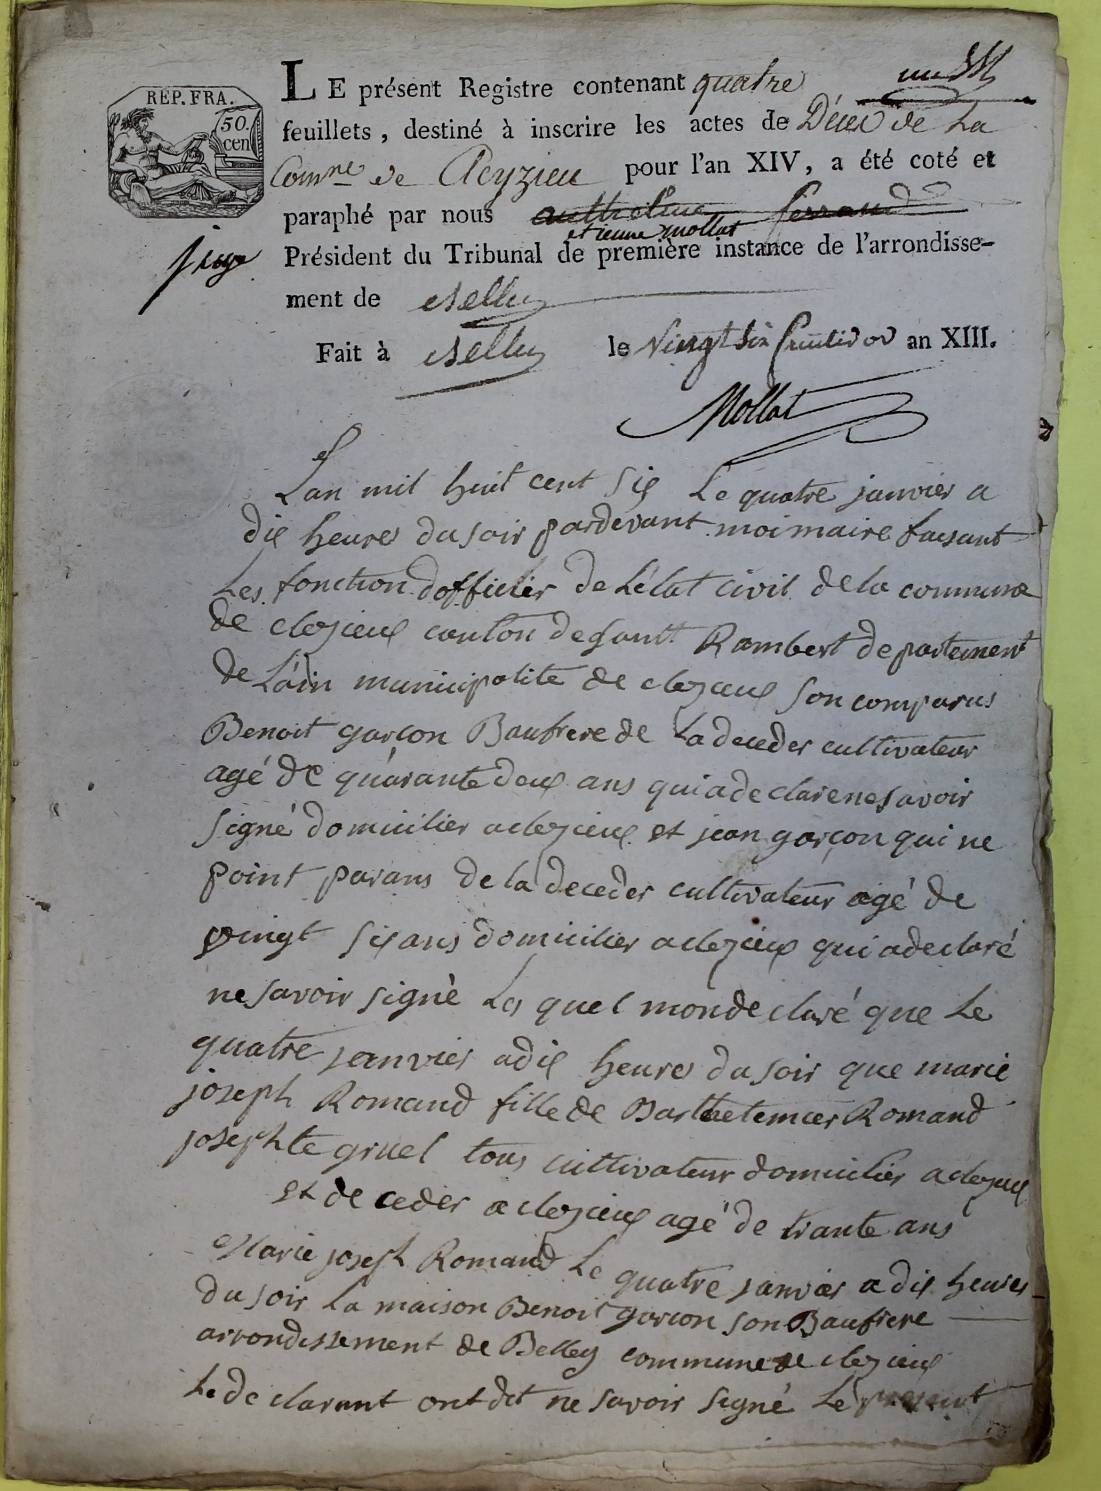 REP. FRA.
50. cen
un
LE présent Registre contenant quatre
feuillets, destiné à inscrire les actes de Déces de La
Comne de Cleyzieu pour l'an XIV, a été coté et
paraphé par nous anthelme ferrand
etienne mollat
juge Président du Tribunal de première instance de l'arrondisse-
ment de Belley
Fait à Belley le Vingt six Fructidor an XIII.
Mollat
Lan mil huit cent six Le quatre janvier a
dix heures du soir pardevant moi maire faisant
Les fonction dofficier de Létat civil de la commune
de clezieux canton de saint Rambert departement
de Láin municipalite de clezieux son comparus
Benoit garcon Baufrere de La deceder cultivateur
agé de quarante deux ans qui a declare ne savoir
signé domicilier a clezieux et jean garçon qui ne
point parans de la deceder cultivateur agé de
vingt six ans domicilier a clezieux qui a declaré
ne savoir signé Les quel mon declaré que Le
quatre janvier a dix heures du soir que marie
joseph Romand fille de Barthelemier Romand
josephte gruel tous cultivateur domicilier a clezieux
et de ceder a clezieux agé de trante ans
Marie joseph Romand Le quatre janvier a dix heures
du soir La maison Benoit garcon son Baufrere
arrondissement de Belley commune de clezieux
Le declarant ont dit ne savoir signé Le present